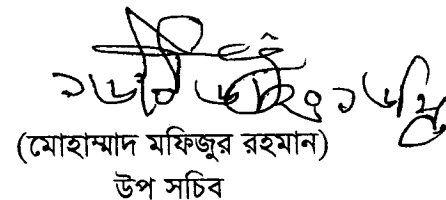 (মোহাম্মাদ মফিজুর রহমান)
উপ সচিব